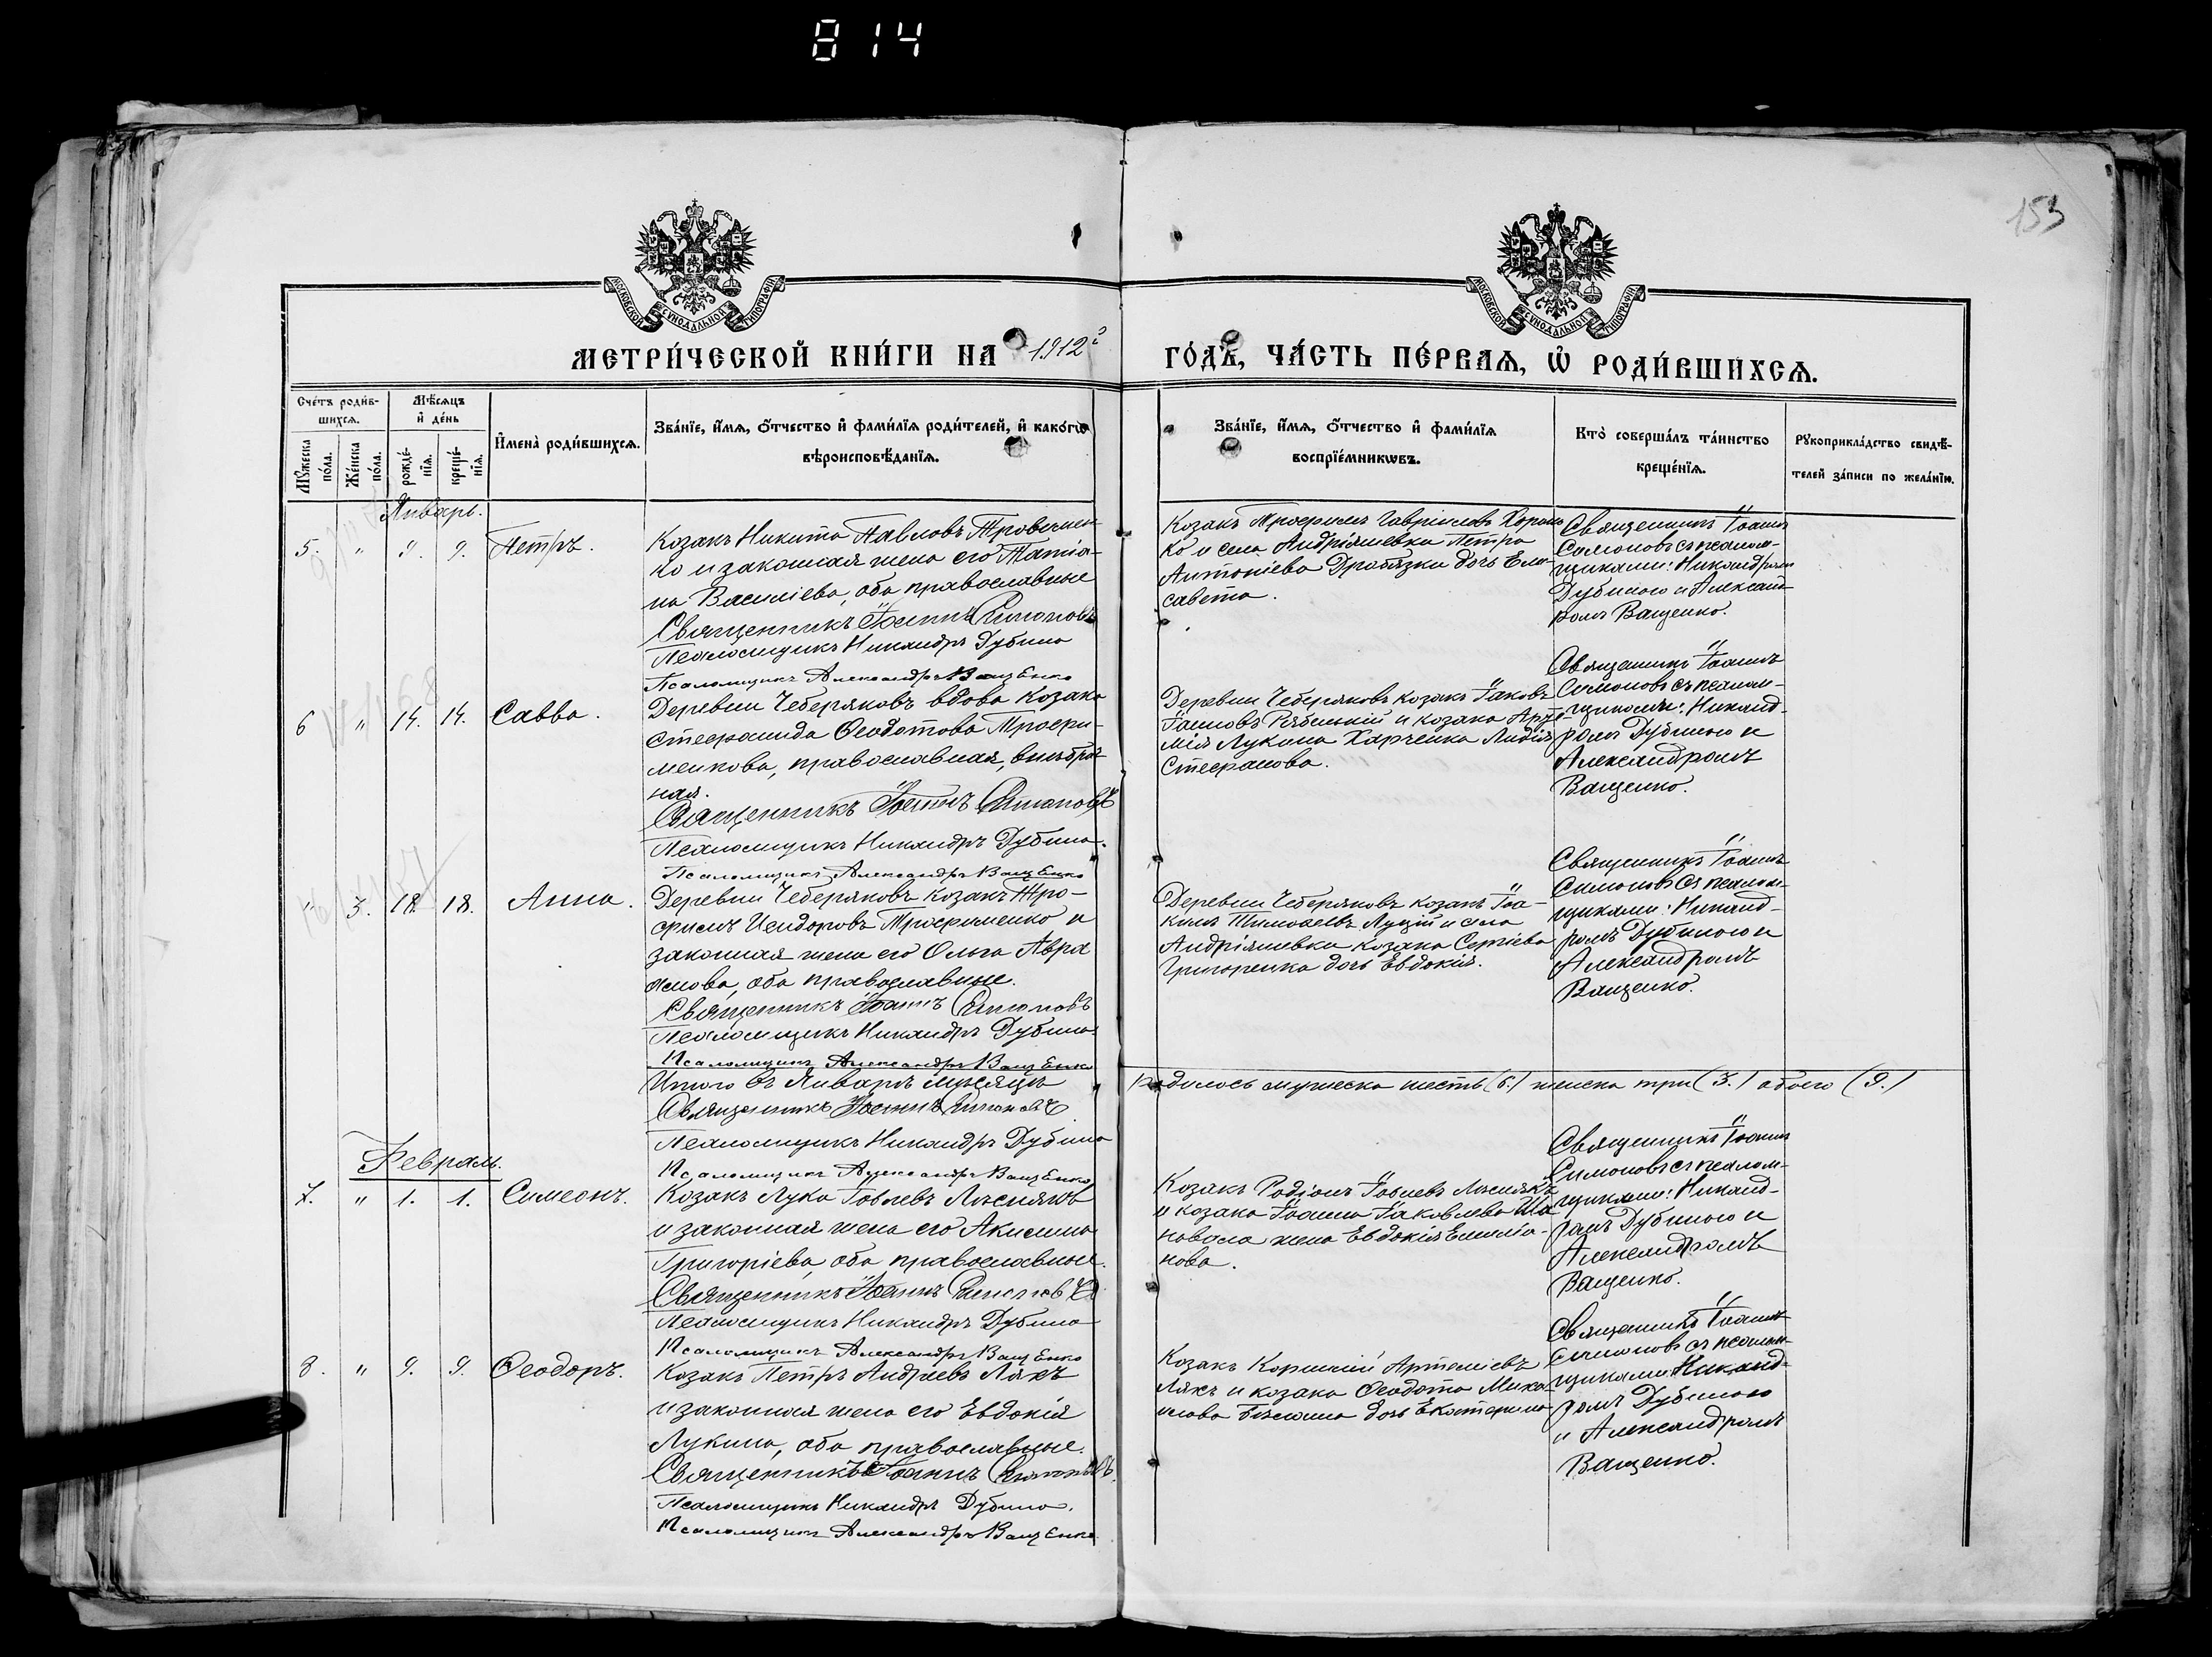 814
153
МОСКОВСКОЙ СѴНОДАЛЬНОЙ ТИПОГРАФІИ
МОСКОВСКОЙ СѴНОДАЛЬНОЙ ТИПОГРАФІИ
МЕТРИ́ЧЕСКОЙ КНИ́ГИ НА 1912й ГО́ДЪ, ЧА́СТЬ ПЕ́РВАѦ, Ѡ҆ РОДИ́ВШИХСѦ.
Сче́тъ роди́в-
шихсѧ.
Мѣ́сѧцъ
и҆ де́нь
Мꙋ́жеска
по́ла.
Же́нска
по́ла.
рожде́-
нїѧ.
креще́-
нїѧ.
И҆мена̀ роди́вшихсѧ.
Зва́нїе, и҆́мѧ, ѻ҆́тчество и҆ фами́лїѧ роди́телей, и҆ како́гѡ
вѣроисповѣ́данїѧ.
Зва́нїе, и҆́мѧ, ѻ҆́тчество и҆ фами́лїѧ
воспрїе́мникѡвъ.
Кто̀ соверша́лъ та́инство
креще́нїѧ.
Рꙋкоприкла́дство свидѣ́-
телей за́писи по жела́нїю.
Январь.
5. " 9. 9. Петръ.
Козакъ Никита Павловъ
ко и законная жена его Татіа-
на Василіева, оба православные
Священникъ Іоаннъ Симоновъ
Псаломщикъ Никандръ Дубина
Псаломщикъ Александръ Ващенко
Козакъ Трофимъ Гавріиловъ
ко и села Андріяшевки Петра
Антоніева Дробязки дочь Ели-
савета.
Священникъ Іоаннъ
Симоновъ съ псалом-
щиками: Никандромъ
Дубиною и Александ-
ромъ Ващенко.
6 " 14. 14. Савва.
Деревни Чеберяковъ вдова козака
Стефанида Ѳеодотова Трофи-
менкова, православная, внѣбрач-
ная.
Священникъ Іоаннъ Симоновъ
Псаломщикъ Никандръ Дубина.
Псаломщикъ Александръ Ващенко
Деревни Чеберяковъ козакъ Іаковъ
Іоанновъ Рябенькій и козака Арте-
мія Лукина Харченка Лидія
Стефанова.
Священникъ Іоаннъ
Симоновъ съ псалом-
щиками: Никанд-
ромъ Дубиною и
Александромъ
Ващенко.
" 3. 18. 18. Анна.
Деревни Чеберяковъ козакъ Тро-
фимъ Исидоровъ Трофименко и
законная жена его Ольга Авра
амова, оба православные.
Священникъ Іоаннъ Симоновъ
Псаломщикъ Никандръ Дубина
Псаломщикъ Александръ Ващенко
Деревни Чеберяковъ козакъ Іоа-
кимъ Тимоѳеевъ Луцій и села
Андріяшевки козака Сергіева
Григоренка дочь Евдокія.
Священникъ Іоаннъ
Симоновъ съ псалом-
щиками: Никанд-
ромъ Дубиною и
Александромъ
Ващенко.
Итого въ Январѣ мѣсяцѣ родилось мужеска шесть (6.) женска три (3.) обоего (9.)
Священникъ Іоаннъ Симоновъ
Псаломщикъ Никандръ Дубина
Псаломщикъ Александръ Ващенко
Февраль.
7. " 1. 1. Симеонъ.
Козакъ Лука Іовлевъ Лиснякъ
и законная жена его Акилина
Григоріева, оба православные.
Священникъ Іоаннъ Симоновъ
Псаломщикъ Никандръ Дубина
Псаломщикъ Александръ Ващенко
Козакъ Родіонъ Іовлевъ Лиснякъ
и козака Іоанна Іаковлева Ша
повала жена Евдокія Емиліа-
нова.
Священникъ Іоаннъ
Симоновъ съ псалом-
щиками: Никанд-
ромъ Дубиною и
Александромъ
Ващенко.
8. " 9. 9. Ѳеодоръ.
Козакъ Петръ Андреевъ Ляхъ
и законная жена его Евдокія
Лукина, оба православные.
Священникъ Іоаннъ Симоновъ
Псаломщикъ Никандръ Дубина.
Псаломщикъ Александръ Ващенко.
Козакъ Корнилій Артеміевъ
Ляхъ и козака Ѳеодота Миха-
илова дочь Екатерина
Священникъ Іоаннъ
Симоновъ съ псалом-
щиками Никанд-
ромъ Дубиною
и Александромъ
Ващенко.